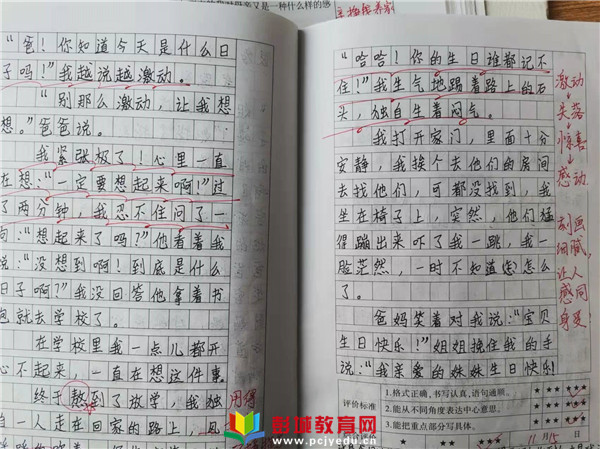 是一种什么样的感
"爸!你知道今天是什么日
子吗!"我越说越激动。
"别那么激动,让我想
想。"爸爸说。
我紧张极了!心里一直
在想:"一定要想起来啊!"过
了两分钟,我忍不住问了一
句:"想起来了吗?"他看着我
说:"没想到啊!到底是什么
日子啊?"我没回答他拿着书
包就去学校了。
在学校里我一点儿都开
心不起来,一直在想这件事
终于熬到了放学,我独
自一人走在回家的路上,见
用得
"哈哈!你的生日谁都记不
住!"我生气地踢着路上的石
头,独自生着闷气。
我打开家门,里面十分
安静,我挨个去他们的房间
去找他们,可都没找到,我
坐在椅子上,突然,他们猛
得蹦出来吓了我一跳,我一
脸茫然,一时不知道怎怎么
了。
爸妈笑着对我说:"宝贝
生日快乐!"姐姐挽住我的手
说:"我亲爱的妹妹生日快乐!
激动
失落
惊喜
感动
刻画
细腻,
让人
感同
身受!
评价标准
1.格式正确,书写认真,语句通顺。
2.能从不同角度表达中心意思。
3.能把重点部分写具体。
11月15日
彭城教育网
www.pcjyedu.cn